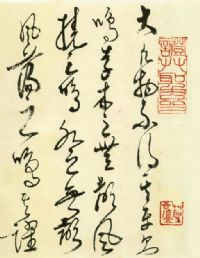 大凡物不得其平則
鳴草木之無聲風
撓之鳴水之無聲
風蕩之鳴其躍